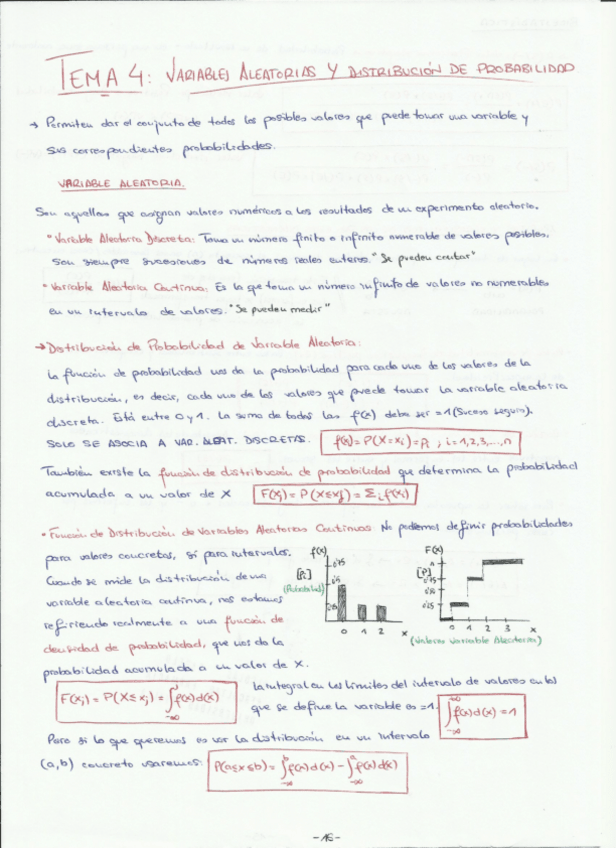 TEMA 4: VARIABLES ALEATORIAS Y DISTRIBUCIÓN DE PROBABILIDAD
→ Permiten dar el conjunto de todos los posibles valores que puede tomar una variable y
sus correspondientes probabilidades.
VARIABLE ALEATORIA.
Son aquellas que asignan valores numéricos a los resultados de un experimento aleatorio.
• Variable Aleatoria Discreta: Toma un número finito o infinito numerable de valores posibles.
Son siempre sucesiones de números reales enteros. "Se pueden contar"
• Variable Aleatoria Continua: Es la que toma un número infinito de valores no numerables
en un intervalo de valores. "Se pueden medir"
→ Distribución de Probabilidad de Variable Aleatoria:
La función de probabilidad nos da la probabilidad para cada uno de los valores de la
distribución, es decir, cada uno de los valores que puede tomar la variable aleatoria
discreta. Está entre 0 y 1. La suma de todas las f(x) debe ser = 1 (Suceso seguro).
SOLO SE ASOCIA A VAR. ALEAT. DISCRETAS. f(x) = P(X=xi) = Pi ; i=1,2,3,...,n
También existe la función de distribución de probabilidad que determina la probabilidad
acumulada a un valor de X F(xj) = P(X≤xj) = Σi f(xi)
• Función de Distribución de Variables Aleatorias Continuas: No podemos definir probabilidades
para valores concretos, sí para intervalos.
Cuando se mide la distribución de una
variable aleatoria continua, nos estamos
refiriendo realmente a una función de
densidad de probabilidad, que nos da la
probabilidad acumulada a un valor de X.
f(x)
[Pi]
0 1 2 x
F(x)
[P]
0 1 2 3 x
(Valores Variable Aleatoria)
F(xj) = P(X≤xj) = ∫-∞ j f(x)d(x)
La integral en los límites del intervalo de valores en los
que se define la variable es =1. ∫-∞ +∞ f(x)d(x) = 1
Pero si lo que queremos es ver la distribución en un intervalo
(a,b) concreto usaremos: P(a≤x≤b) = ∫-∞ b f(x)d(x) - ∫-∞ a f(x)d(x)
-16-